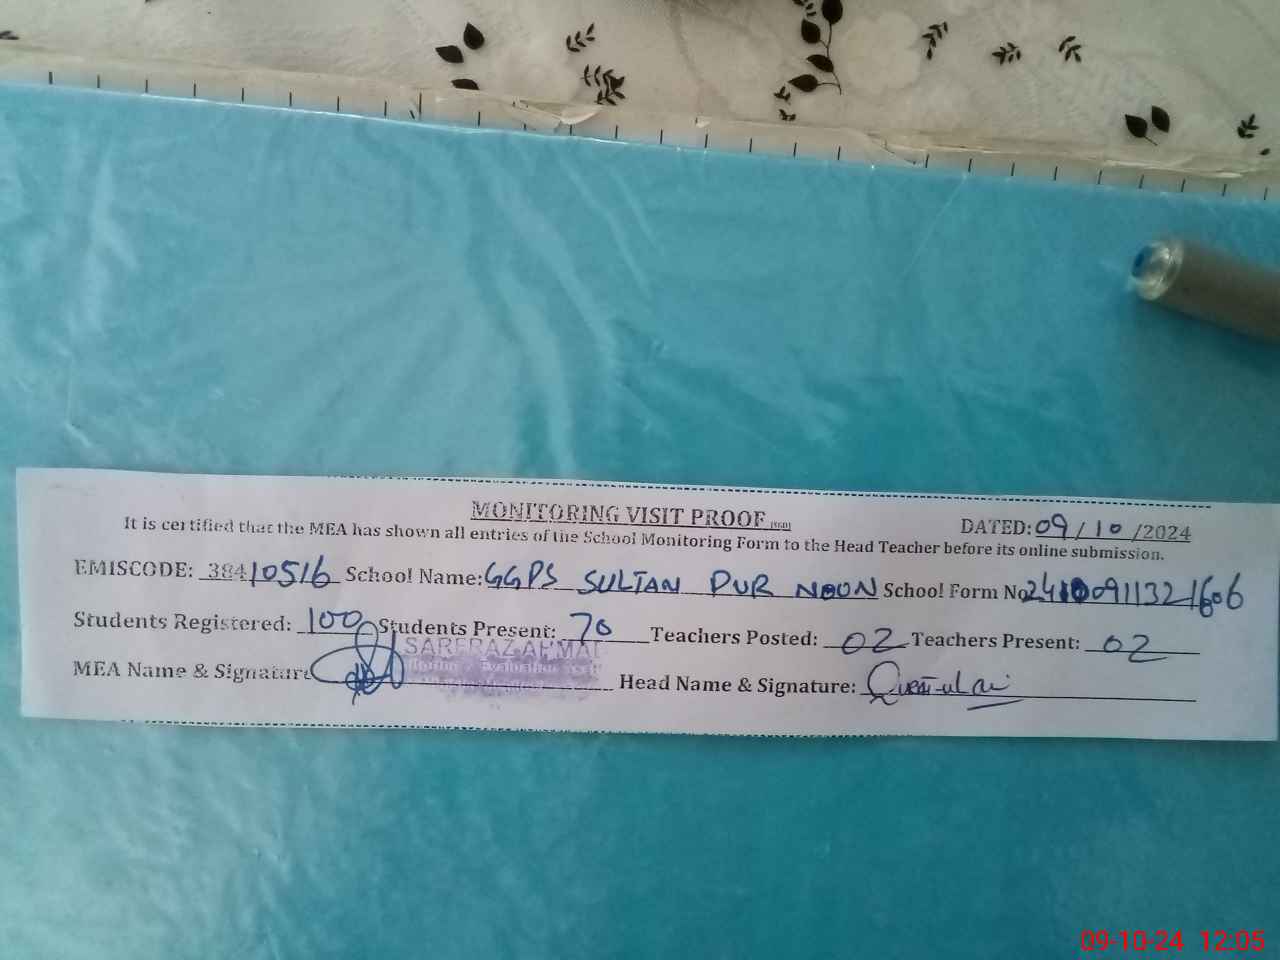 MONITORING VISIT PROOF [SGD] DATED: 09/10/2024
It is certified that the MEA has shown all entries of the School Monitoring Form to the Head Teacher before its online submission.
EMISCODE: 38410516 School Name: GGPS SULTAN PUR NOON School Form No
Students Registered: 100 Students Present: 70 Teachers Posted: 02 Teachers Present: 02
SARFRAZ AHMAD
MEA Name & Signature Head Name & Signature:
09-10-24 12:05